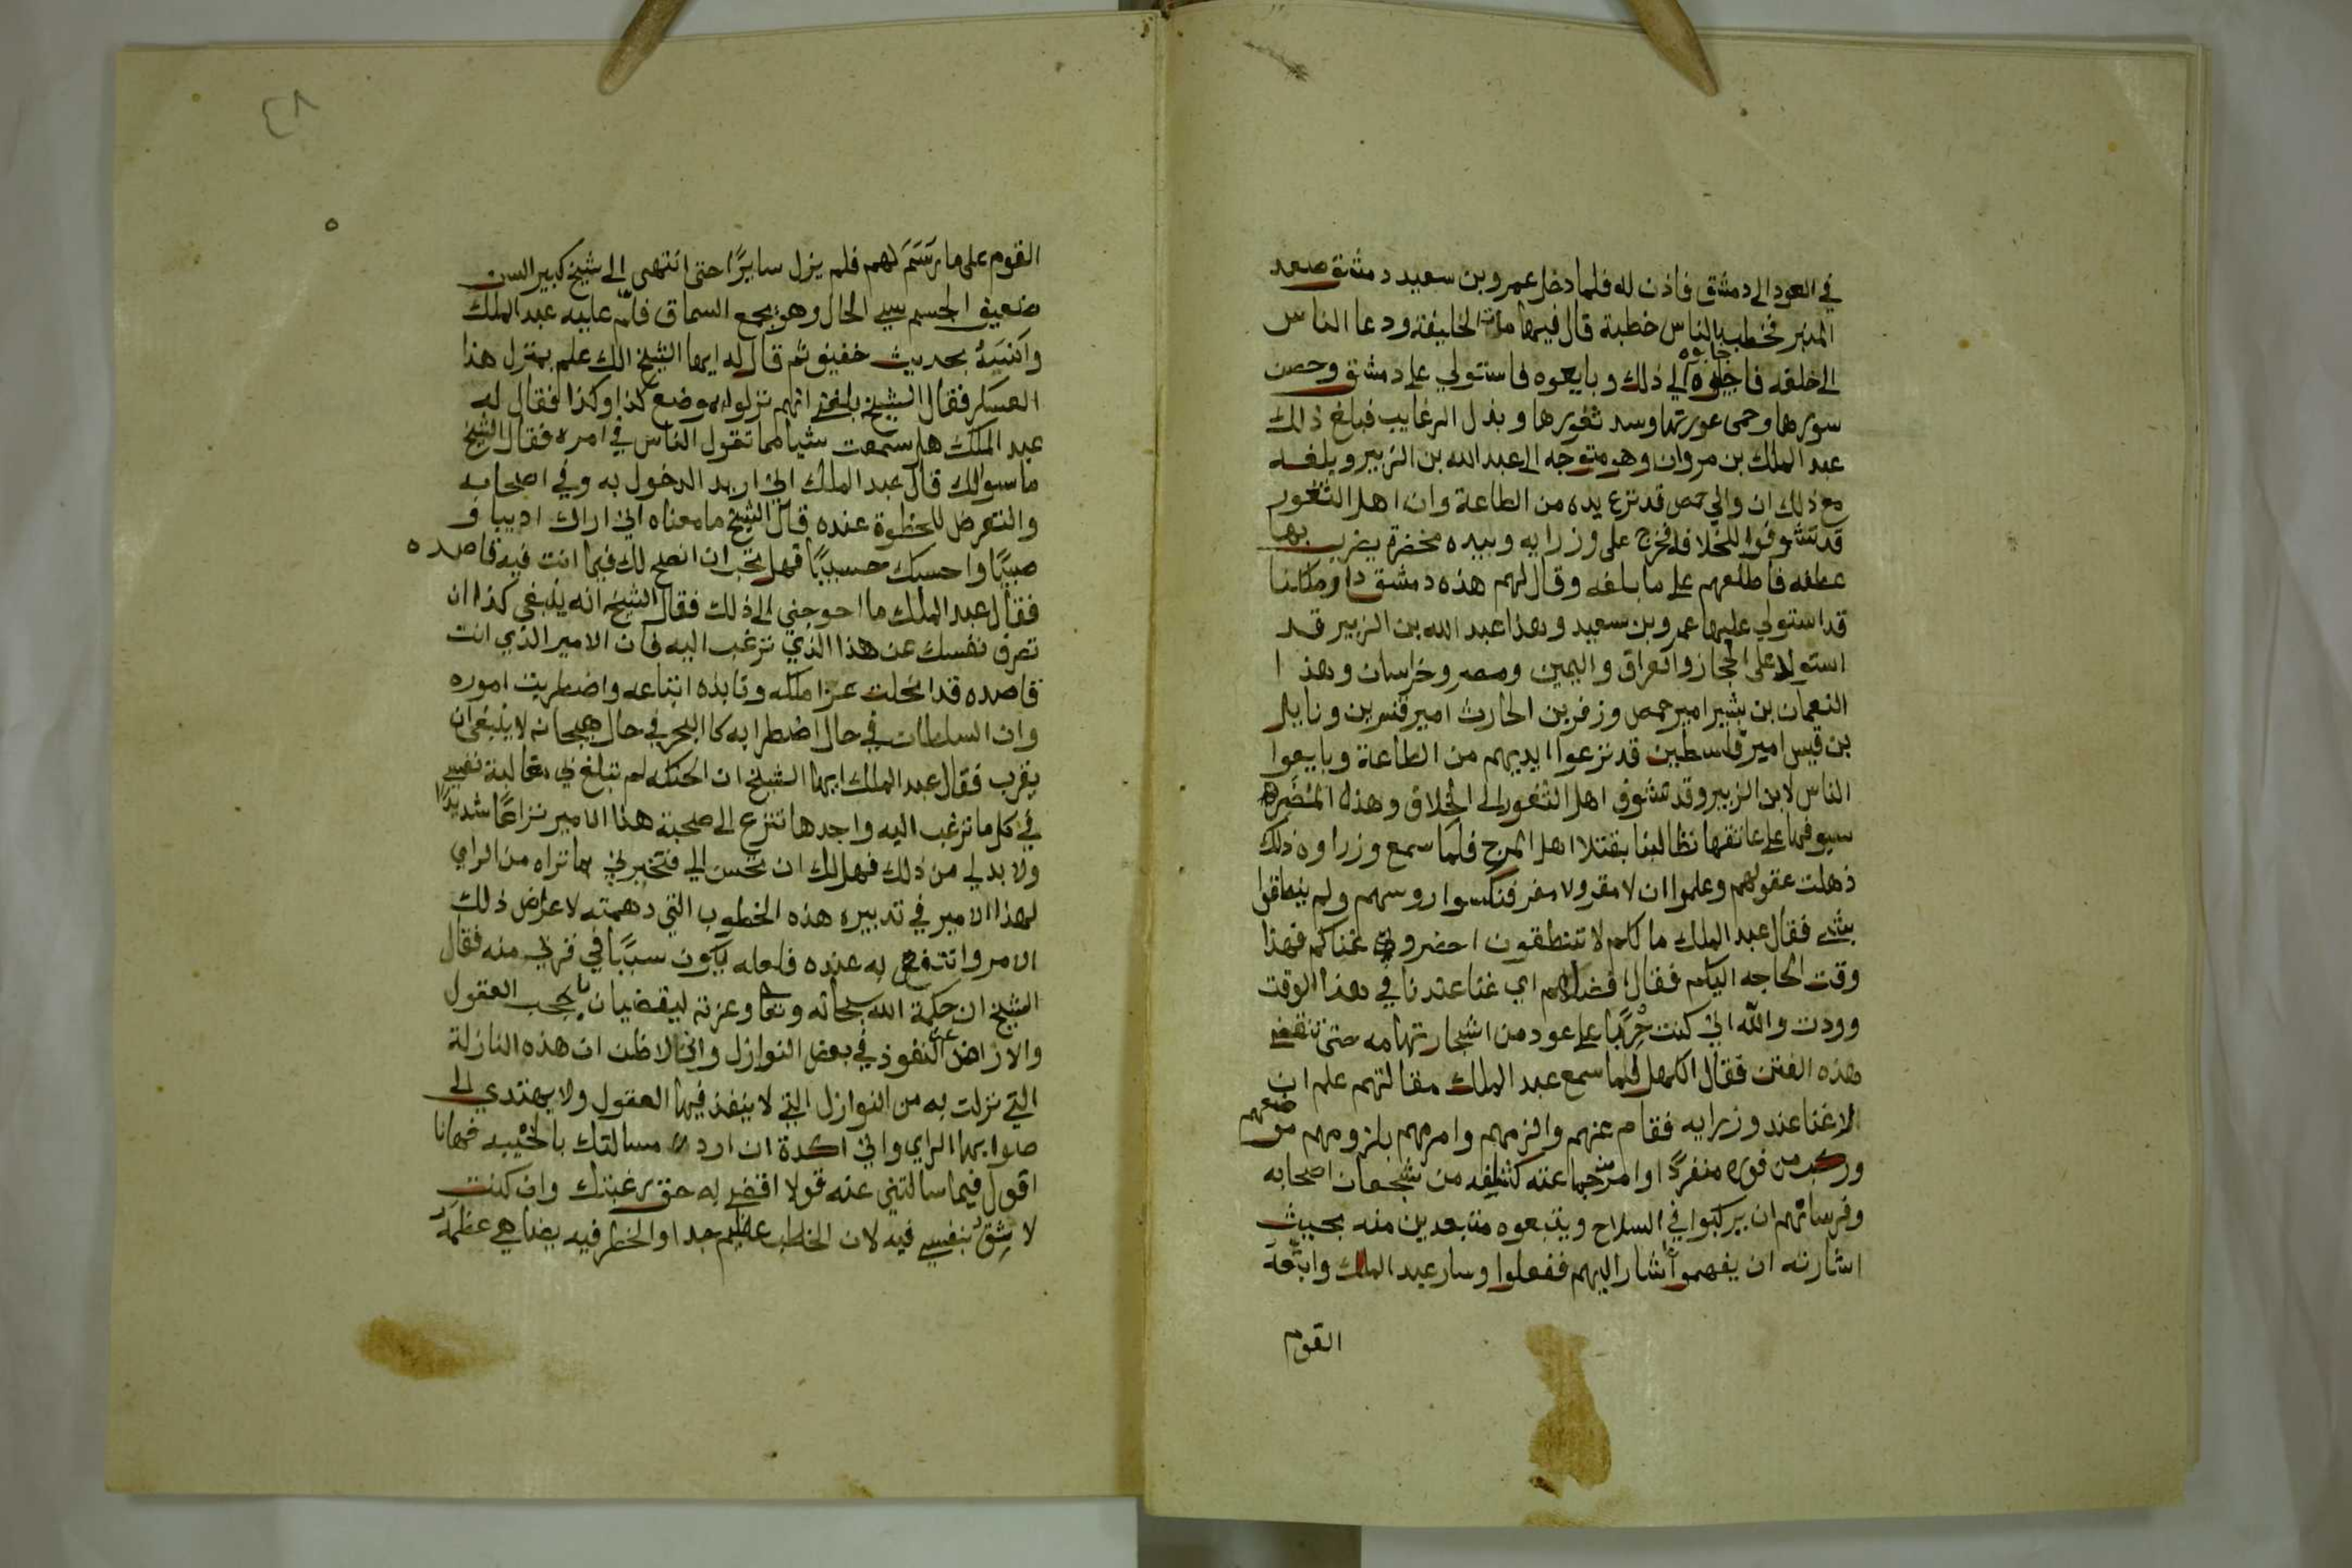 في العود الى دمشق فاذن له فلما دخل عمرو بن سعيد دمشق صعد
المنبر فخطب الناس خطبة قال فيها مات الخليفة ودعا الناس
الى خلعه فاجابوه الي ذلك وبايعوه فاستولي على دمشق وحصن
سورها وحمى عورتها وسد ثغورها وبذل الرغايب فبلغ ذلك
عبد الملك بن مروان وهو متوجه الى عبد الله بن الزبير وبلغه
مع ذلك ان والي حمص قد نزع يده من الطاعة وان اهل الثغور
قد تشوفوا للخلاف فخرج على وزرايه وبيده مخضرة يضرب بها
عطفه فاطلعهم على ما بلغه وقال لهم هذه دمشق دار ملكنا
قد استولي عليها عمرو بن سعيد وهذا عبد الله بن الزبير قد
استولا على الحجاز والعراق واليمن ومصر وخراسان وهذا
النعمان بن بشير امير حمص وزفر بن الحارث امير قنسرين ونايل
بن قيس امير فلسطين قد نزعوا ايديهم من الطاعة وبايعوا
الناس لابن الزبير وقد تشوف اهل الثغور الى الخلاف وهذه المضريه
سيوفها على عاتقها تطالبنا بقتلا اهل المرج فلما سمع وزراوه ذلك
ذهلت عقولهم وعلموا ان لا مقر ولا مفر فنكسوا روسهم ولم ينطقوا
بشي فقال عبد الملك ما لكم لا تنطقون احضروني غناكم فهذا
وقت الحاجه اليكم فقال افضلهم اي غنا عندنا في هذا الوقت
وودت والله اني كنت حربا على عود من اشجار تهامه حتى تنقضي
هذه الفتن فقال الكهل فلما سمع عبد الملك مقالتهم علم ان
لا غنا عند وزرايه فقام عنهم والزمهم وامرهم بلزومهم موضعهم
وركب من فوره منفردًا وامر جماعته من شجعان اصحابه
وفرسانهم ان يركبوا في السلاح ويتبعوه متبعدين منه بحيث
اشارته ان يفهموا اشار اليهم ففعلوا وسار عبد الملك واتبعه
القوم
٤٨
القوم على ما رسم لهم فلم يزل سايرًا حتى انتهى الى شيخ كبير السن
ضعيف الجسم سيي الحال وهو يجمع السماق فسلم عليه عبد الملك
وآنسه بحديث خفيف ثم قال له ايها الشيخ الك علم بمنزل هذا
العسكر فقال الشيخ بلغني انهم نزلوا بموضع كذا وكذا فقال له
عبد الملك هل سمعت شيا مما تقول الناس في امره فقال الشيخ
ما سوالك قال عبد الملك اني اريد الدخول به وفي اصحابه
والتعرض للحظوة عنده قال الشيخ ما معناه اني اراك اديبا و
صبيًا واحسبك حسيبًا فهل تحب ان انصح لك فيما انت فيه قاصده
فقال عبد الملك ما احوجني الى ذلك فقال الشيخ انه ينبغي كذا ان
تصرف نفسك عن هذا الذي ترغب اليه فان الامير الذي انت
قاصده قد انحلت عزا ملكه ونابذه اتباعه واضطربت اموره
وان السلطان في حال اضطرابه كالبحر في حال هيجانه لا ينبغي ان
يقرب فقال عبد الملك ايها الشيخ ان الحنكه لم تبلغ لي مغالبة نفسي
في كل ما ترغب اليه واجدها تنزع الى صحبة هذا الامير نزاعًا شديدًا
ولا بد لي من ذلك فهل لك ان تحسن الي فتخبرني بما تراه من الراي
لهذا الامير في تدبير هذه الخطوب التي دهمته لاعرض ذلك
الامر وانتفع به عنده فلعله يكون سببًا في قربي منه فقال
الشيخ ان حكمة الله سبحانه وتعا وعزته ليقضيان بحجب العقول
والارا عن النفوذ في بعض النوازل واني لاظن ان هذه النازلة
التي نزلت به من النوازل التي لا ينفذ فيها العقول ولا يهتدي الى
صوابها الراي واني اكره ان ارد مسالتك بالخيبه فهانا
اقول فيما سالتني عنه قولا اقضي به حق رغبتك وان كنت
لا اثق بنفسي فيه لان الخطب عظيم جدا والخطر فيه يضاهي عظمه